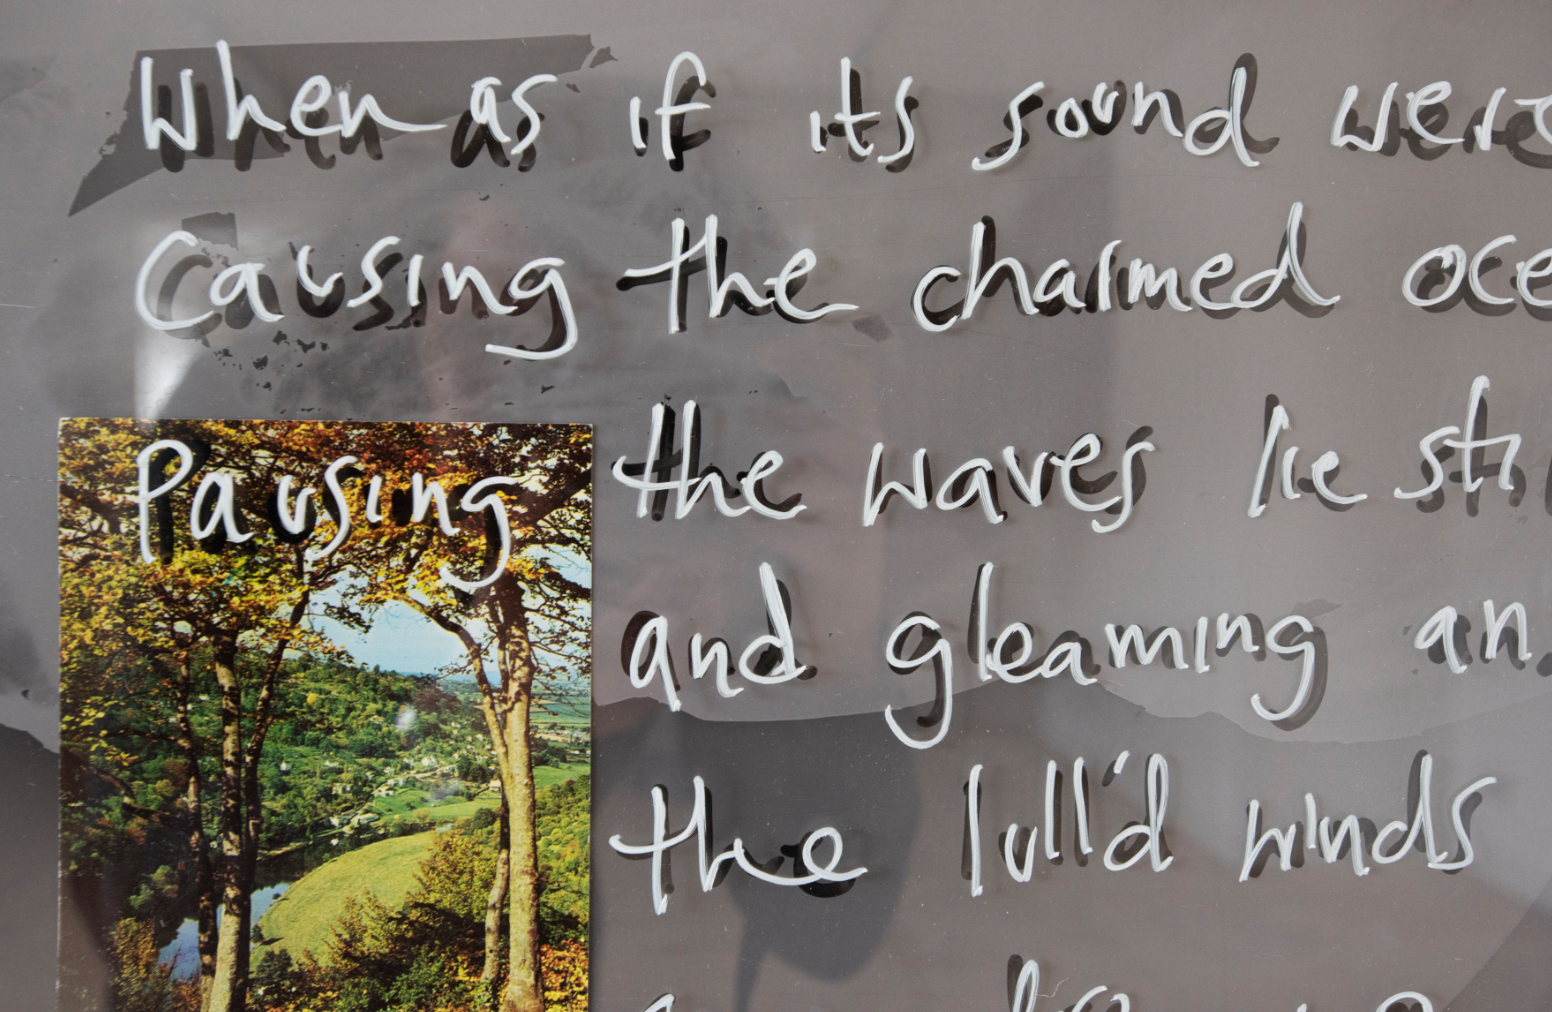 When as if its sound were
Causing the charmed oce
Pausing the waves lie sti
and gleaming an
the lull'd winds